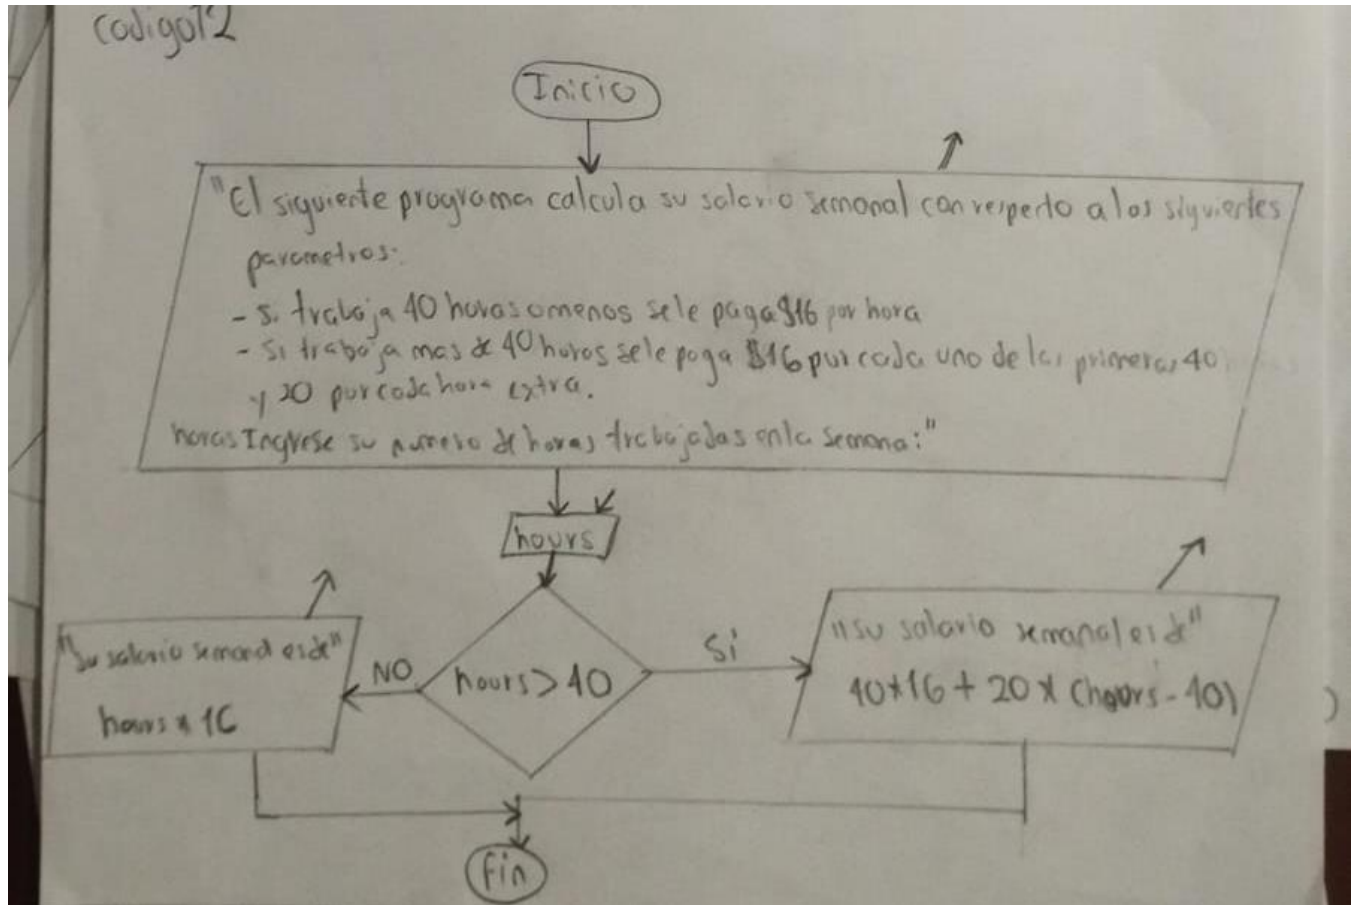 codigo12
Inicio
"El siguiente programa calcula su salario semanal con resperto a los siguientes
parametros:
- si trabaja 40 horas o menos se le paga $16 por hora
- Si trabaja mas de 40 horas se le paga $16 por cada uno de las primeras 40
y 20 por cada hora extra.
horas Ingrese su numero de horas trabajadas en la semana:"
hours
"Su salario semanal es de"
hours * 16
NO
hours > 40
Si
"Su salario semanal es de"
40*16 + 20 * (hours - 40)
)
Fin